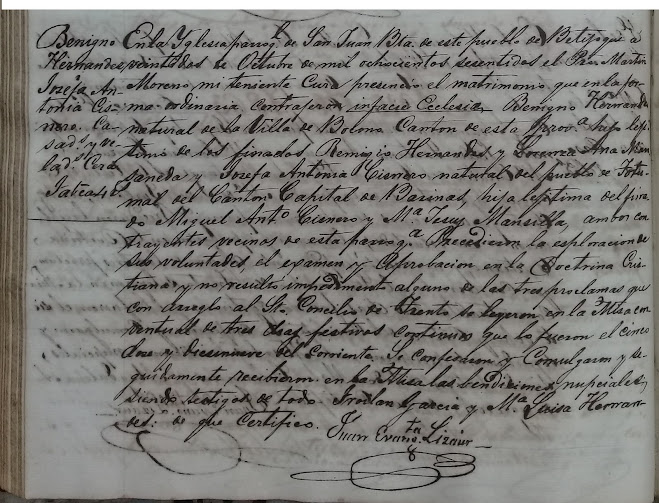 Benigno
Hernandes
Josefa An-
tonia Cis-
nero. Ca-
sad.s y ve-
lad.s Cera
En la Yglesia parroq.l de San Juan Bta. de este pueblo de Betijoque á
veintidos de Octubre de mil ochocientos sesentidos el Pbro. Martin
Moreno, mi teniente Cura presenció el matrimonio que en la for-
ma ordinaria contrajeron infacie Eclesia, Benigno Hernandes
natural de la Villa de Bocono Canton de esta Prov.a hijo leji-
timo de los finados Remigio Hernandes y Lorenza Ana
y Josefa Antonia Cisnero natural del pueblo de Totu-
mal del Canton Capital de Barinas, hija lejitima del fina-
do Miguel Ant.o Cisnero y M.a Jesus Mansilla, ambos con-
trayentes vecinos de esta parroq.a Precedieron la esploracion de
sus voluntades, el examen y aprobacion en la Doctrina Cris-
tiana y no resultó impedimento alguno de las tres proclamas que
con arreglo al Sto. Concilio de Trento se leyeron en la Misa con-
ventual de tres dias festivos continuos que lo fueron el cinco
doce y diesinueve del corriente. Se confesaron y Comulgaron y se-
guidamente recibieron en la Misa las bendiciones nupciales,
siendo testigos de todo Froilan Garcia y M.a Luisa Hernan-
des: de que Certifico.
Juan Evang.ta Lizaur